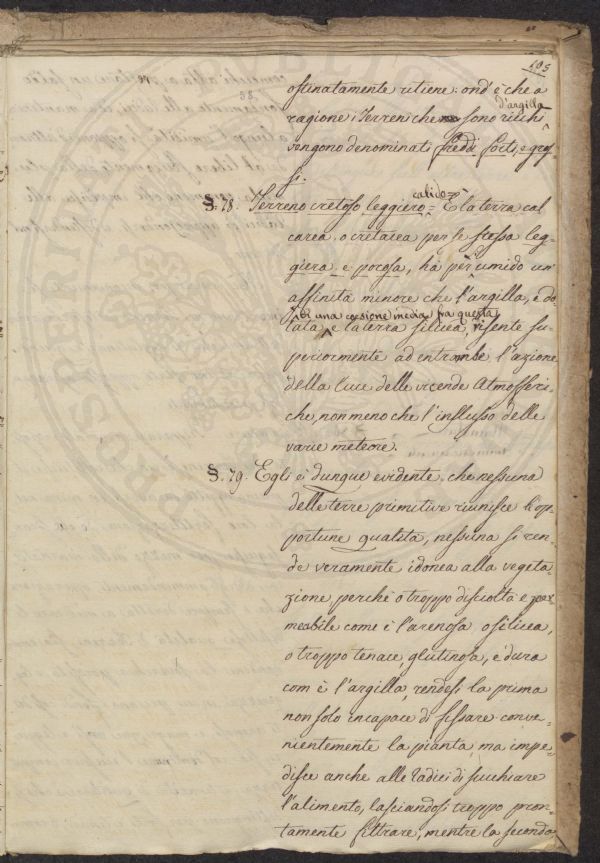 105
ostinatamente ritiene: ond'è che a
d'argilla
ragione i Terreni che sono ricchi
vengono denominati freddi forti, e gros-
si.
calido
§. 78. Terreno cretoso leggiero = E la terra cal
carea o cretacea per se stessa leg-
giera e porosa, hà per umido un
affinità minore che l'argilla, e do-
di una coesione media fra questa
tata e la terra silicea, risente su-
periormente ad entrambe l'azione
della luce delle vicende Atmosferi-
che, non meno che l'influsso delle
varie meteore.
§. 79. Egli è dunque evidente che nessuna
delle terre primitive riunisce l'op-
portune qualità, nessuna si ren-
de veramente idonea alla vegeta-
zione perchè o troppo disciolta e per
meabile come è l'arenosa o silicea,
o troppo tenace, glutinosa, e dura
com è l'argilla, rendesi la prima
non solo incapace di fissare conve-
nientemente la pianta, ma impe-
disce anche alle radici di succhiare
l'alimento, lasciandosi troppo pron-
tamente filtrare, mentre la seconda